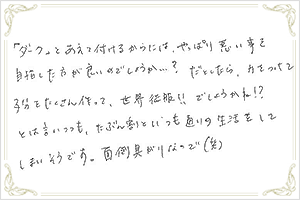 「ダーク」とあえて付けるからには、やっぱり悪い事を
目指した方が良いのでしょうか…？ だとしたら、力をつかって
子分をたくさん作って、世界征服!! でしょうかね!?
とは言いつつも、たぶん割といつも通りの生活をして
しまいそうです。面倒臭がりなので(笑)